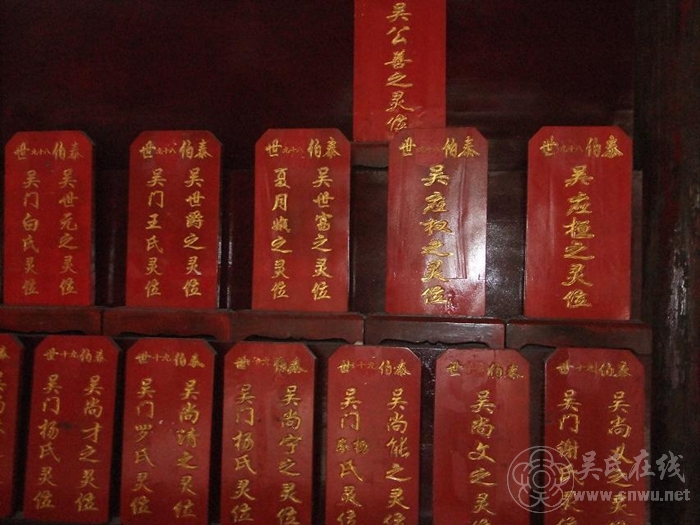 吴公善之灵位
泰伯八十九世
吴应桓之灵位
泰伯八十九世
吴应权之灵位
泰伯八十九世
吴世富之灵位
夏月娥之灵位
泰伯八十九世
吴世爵之灵位
吴门王氏灵位
泰伯八十九世
吴世元之灵位
吴门白氏灵位
泰伯九十世
吴尚
吴门谢氏灵
泰伯九十世
吴尚文之灵位
泰伯九十世
吴尚能之灵位
吴门杨氏灵位
泰伯九十世
吴尚宁之灵位
吴门杨氏灵位
泰伯九十世
吴尚清之灵位
吴门罗氏灵位
泰伯九十世
吴尚才之灵位
吴门杨氏灵位
吴氏在线
www.cnwu.net